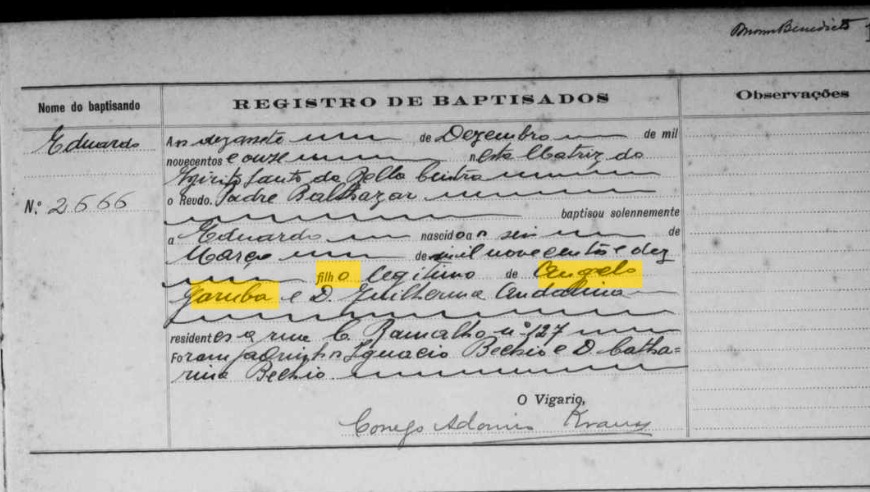 Bruno Benedicto
Nome do baptisando
REGISTRO DE BAPTISADOS
Observações
Eduardo
Nº 2666
Aos dezasete de Dezembro de mil
novecentos e onze nesta Matriz do
Espirito Santo da Bella Cintra
o Revdo. Padre Balthazar
baptisou solennemente
a Eduardo nascido a seis de
Março de mil novecentos e dez
filho legitimo de Angelo
Garuba e D. Guilherma Andalina
residentes a rua C. Ramalho nº 127
Foram padrinhos Ignacio Bechio e D. Catha=
rina Bechio.
O Vigario,
Conego Adomiro Krauss